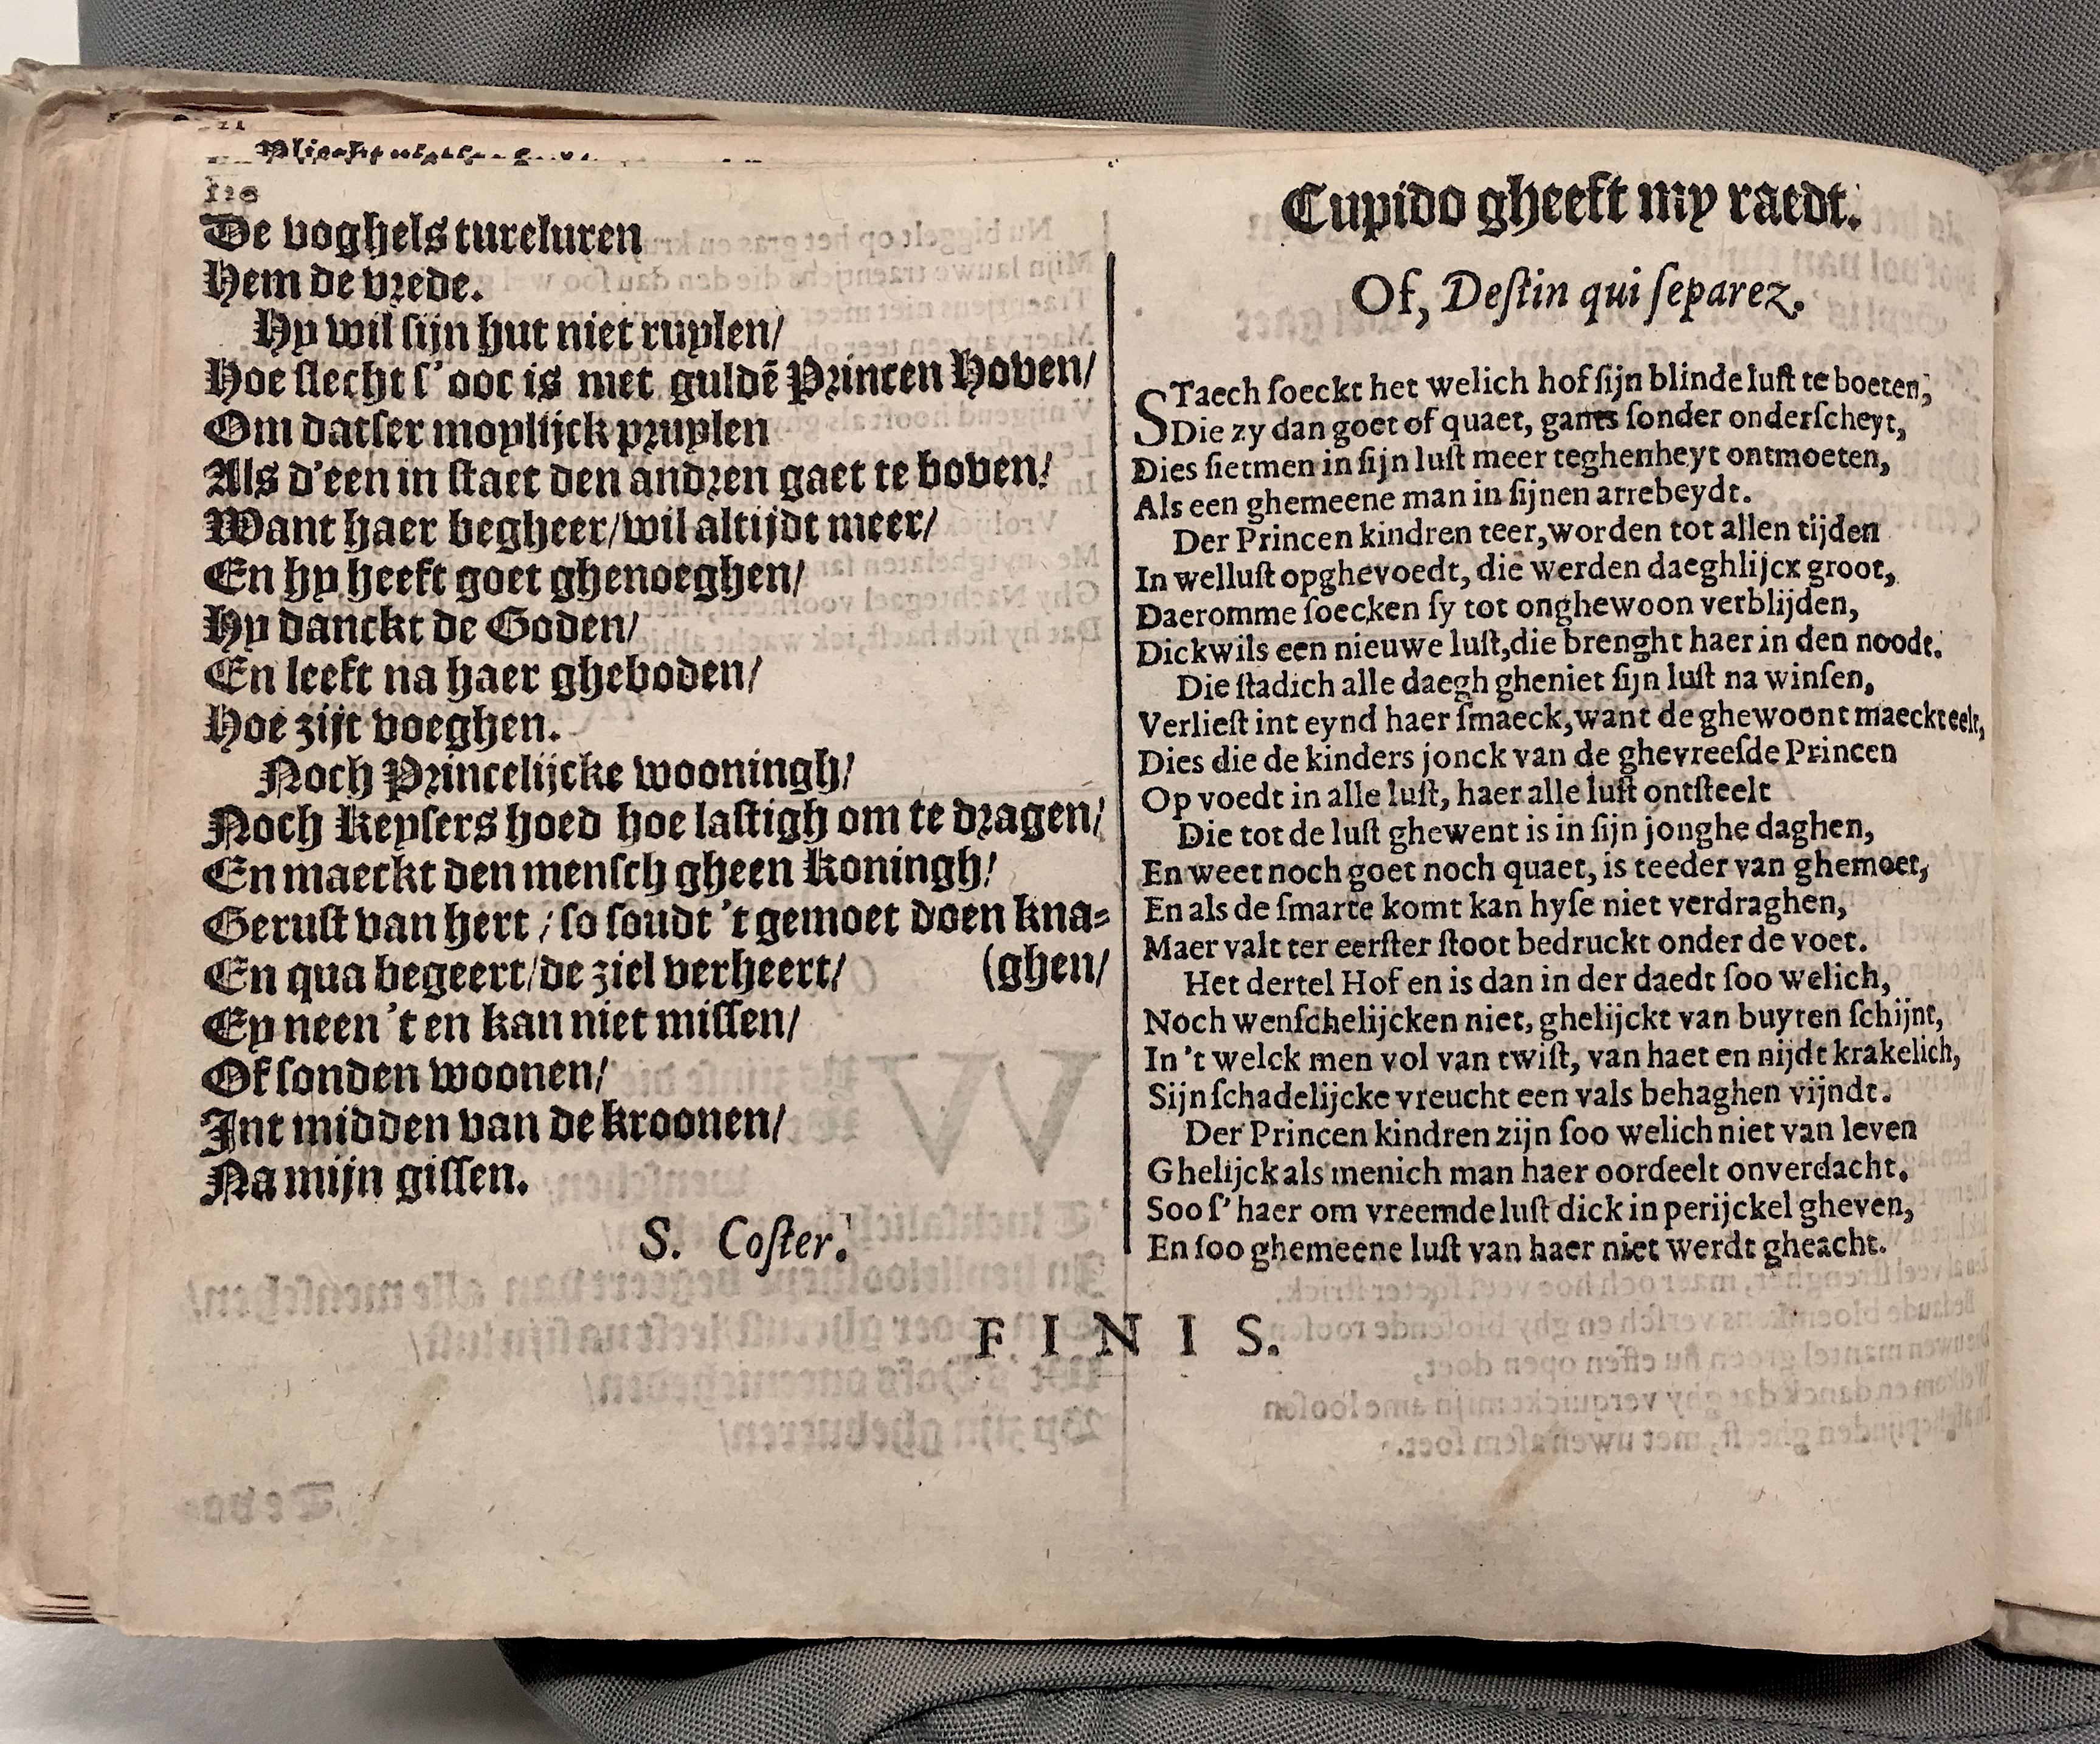 De voghels tureluren
Hem de vrede.
Hy wil sijn hut niet ruylen/
Hoe slecht s'ooc is met guldē Princen Hoven/
Om datser moylijck pruylen
Als d'een in staet den andren gaet te boven/
Want haer begheer/wil altijdt meer/
En hy heeft goet ghenoeghen/
Hy danckt de Goden/
En leeft na haer gheboden/
Hoe zijt voeghen.
Noch Princelijcke wooningh/
Noch Keysers hoed hoe lastigh om te dragen/
En maeckt den mensch gheen Koningh/
Gerust van hert / so soudt 't gemoet doen kna-
En qua begeert/de ziel verheert/ (ghen/
Ey neen 't en kan niet missen/
Of sonden woonen/
Int midden van de kroonen/
Na mijn gissen.
S. Coster.
Cupido gheeft my raedt.
Of, Destin qui separez.
STaech soeckt het welich hof sijn blinde lust te boeten,
Die zy dan goet of quaet, gants sonder onderscheyt,
Dies sietmen in sijn lust meer teghenheyt ontmoeten,
Als een ghemeene man in sijnen arrebeydt.
Der Princen kindren teer, worden tot allen tijden
In wellust opghevoedt, die werden daeghlijcx groot,
Daeromme soecken sy tot onghewoon verblijden,
Dickwils een nieuwe lust, die brenght haer in den noodt.
Die stadich alle daegh gheniet sijn lust na winsen,
Verliest int eynd haer smaeck, want de ghewoont maeckt eelt,
Dies die de kinders jonck van de ghevreesde Princen
Op voedt in alle lust, haer alle lust ontsteelt
Die tot de lust ghewent is in sijn jonghe daghen,
En weet noch goet noch quaet, is teeder van ghemoet,
En als de smarte komt kan hyse niet verdraghen,
Maer valt ter eerster stoot bedruckt onder de voet.
Het dertel Hof en is dan in der daedt soo welich,
Noch wenschelijcken niet, ghelijckt van buyten schijnt,
In 't welck men vol van twist, van haet en nijdt krakelich,
Sijn schadelijcke vreucht een vals behaghen vijndt.
Der Princen kindren zijn soo welich niet van leven
Ghelijck als menich man haer oordeelt onverdacht.
Soo s'haer om vreemde lust dick in perijckel gheven,
En soo ghemeene lust van haer niet werdt gheacht.
FINIS.